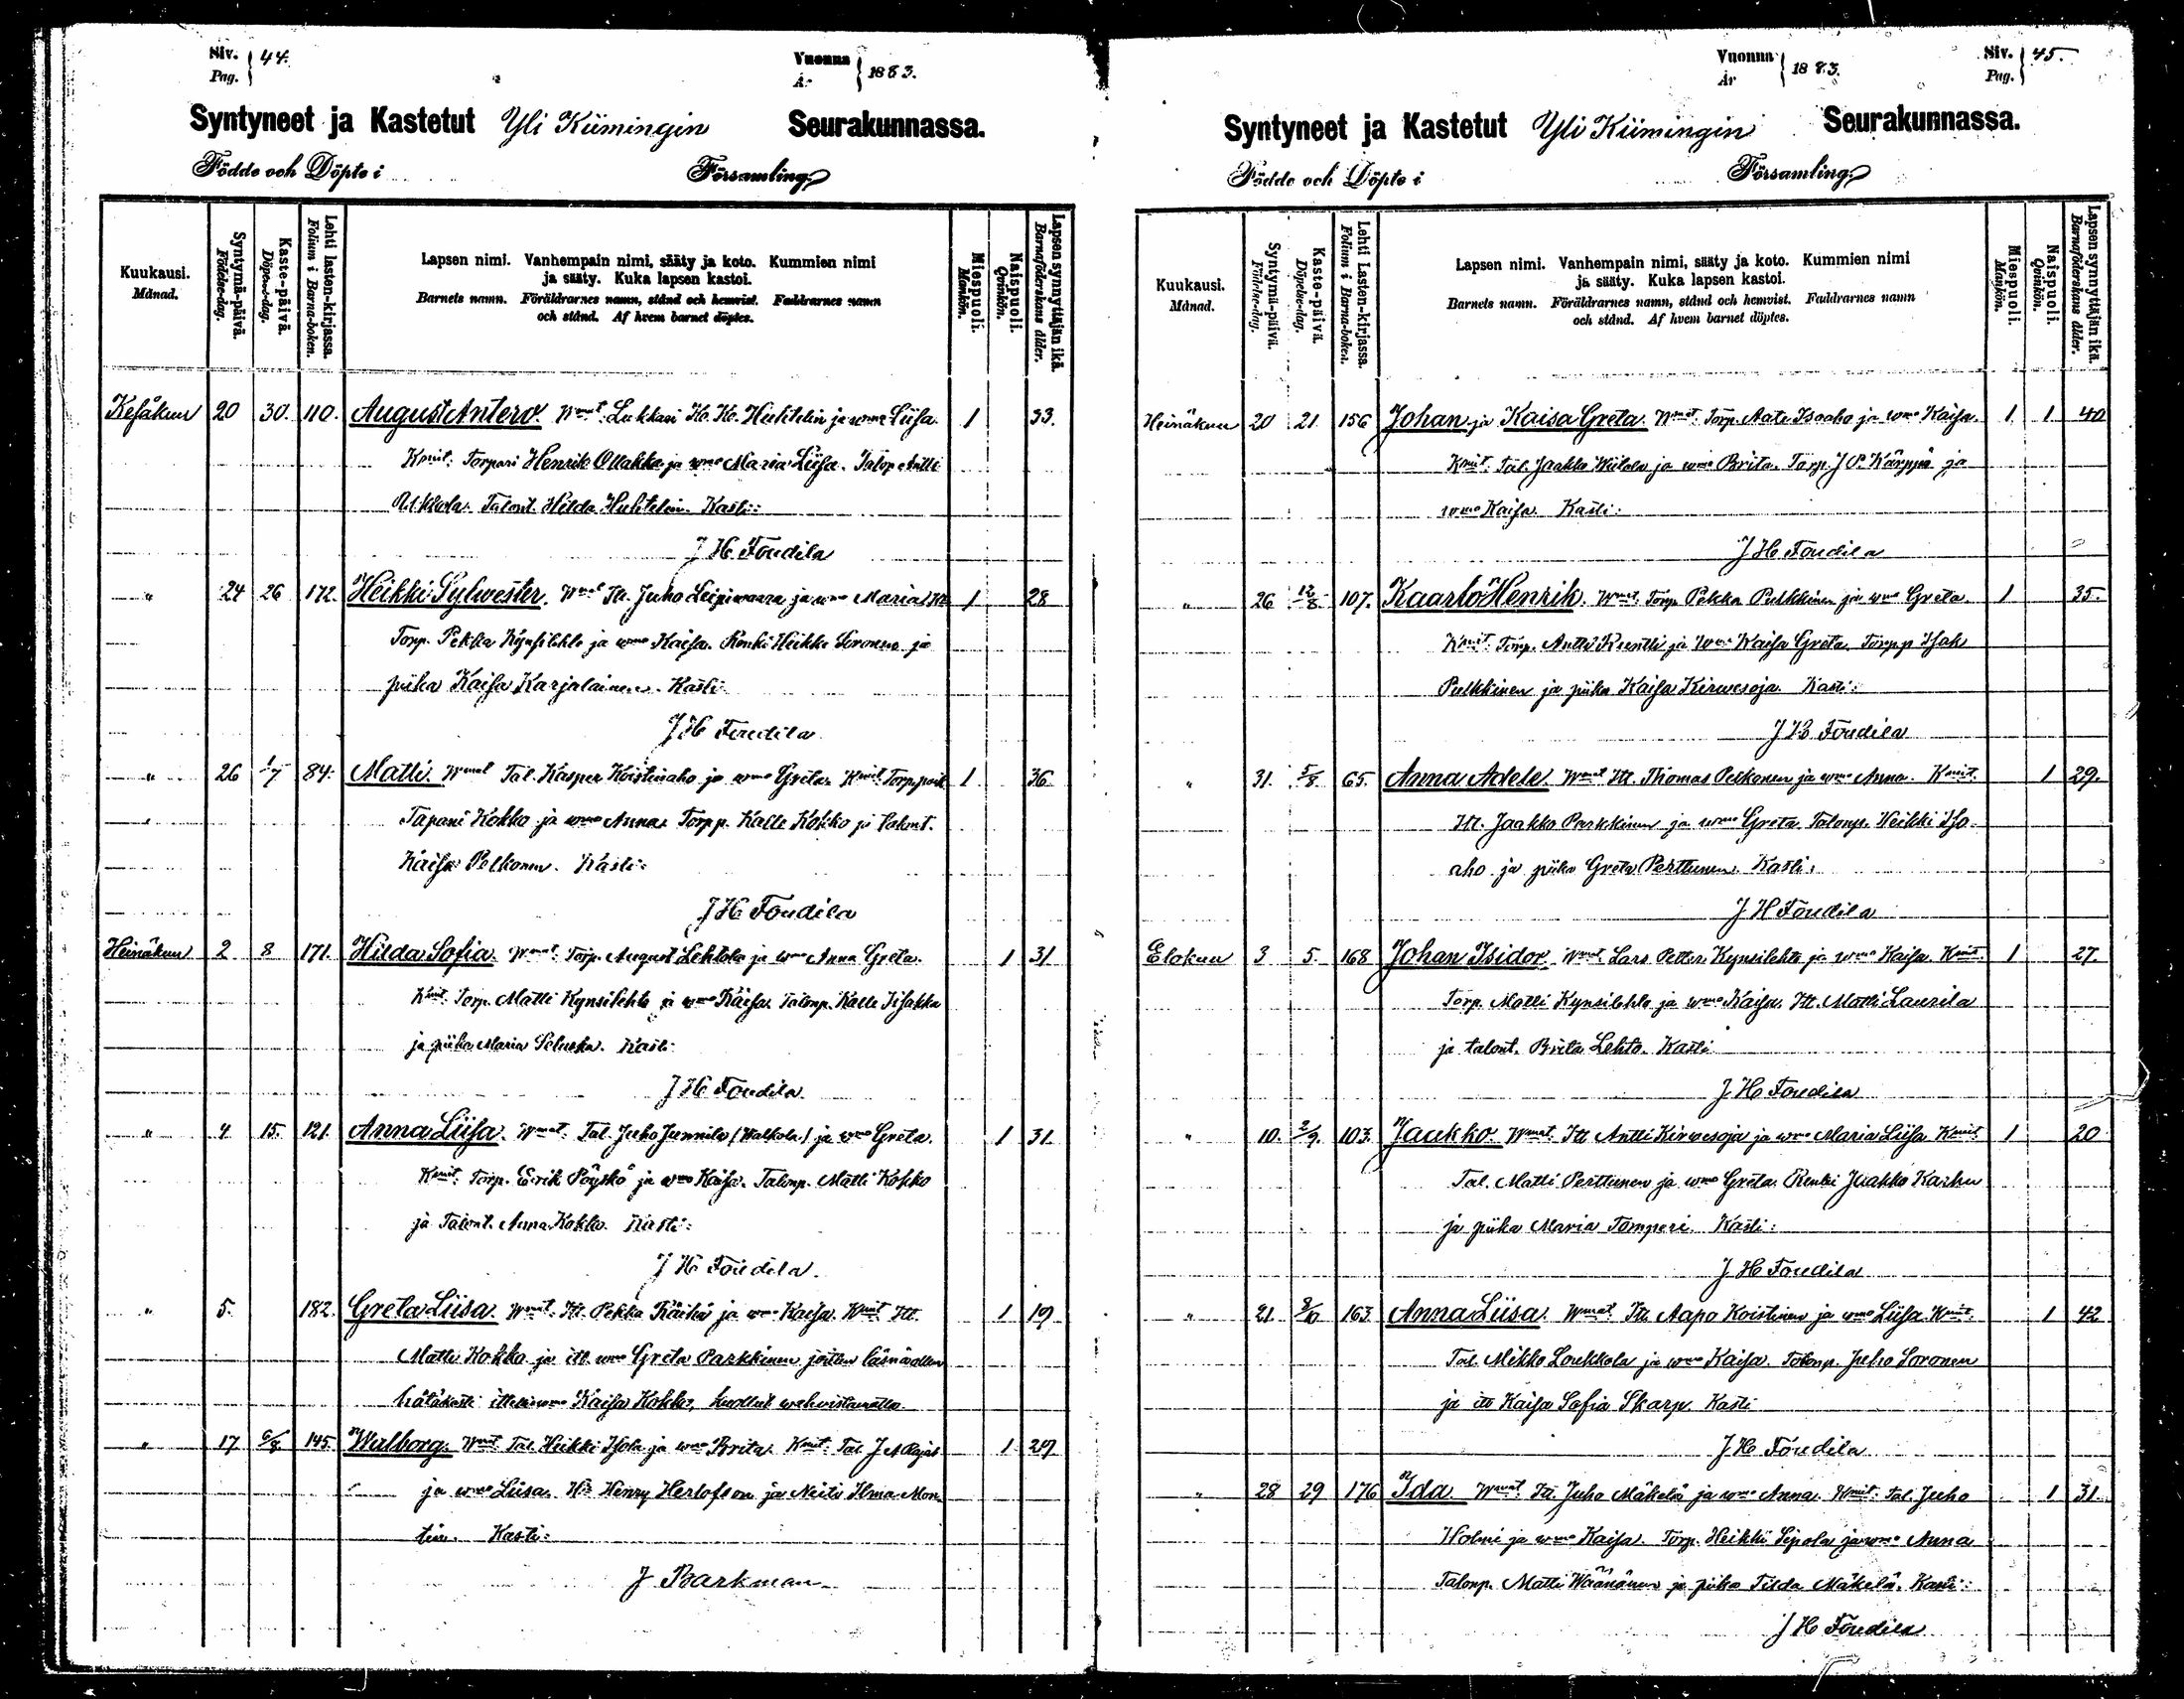 Siv. 44.
Pag.
Vuonna 1883.
År
Syntyneet ja Kastetut Yli Kiimingin Seurakunnassa.
Födde och Döpte i Församling
Kuukausi. Månad.
Syntymä-päivä. Födelse-dag.
Kaste-päivä. Döpelse-dag.
Lehti lasten-kirjassa. Folium i Barna-boken.
Lapsen nimi. Vanhempain nimi, sääty ja koto. Kummien nimi
ja sääty. Kuka lapsen kastoi.
Barnets namn. Föräldrarnes namn, stånd och hemvist. Faddrarnes namn
och stånd. Af hvem barnet döptes.
Miespuoli. Mankön.
Naispuoli. Qvinkön.
Lapsen synnyttäjän ikä. Barnaföderskans ålder.
Kesäkuu 20 30. 110. August Antero. Wmat. Lukkari Huhtelin ja wmo Liisa. 1 33.
Kmit: Torpari Henrik Ollakka ja wmo Maria Liisa. Talop Antti
Talont. Hilda Huhtelin. Kasti:
J H Toudila
" 24 26 172. Heikki Sylwester. Wmat Itt. Juho Leipiwaara ja wmo Maria 1 28
Torp. Pekka Kynsilehto ja wmo Kaisa. Renki Heikki Soronen ja
piika Kaisa Karjalainen. Kasti:
J H Toudila
" 26 1/7 84. Matti. Wmat Tal. Kasper Koistinaho ja wmo Greta. Kmit. Torp.poik 1 36
Tapani Kokko ja wmo Anna. Torpp. Kalle Kokko ja talont.
Kaisa Pelkonen. Kasti:
J H Toudila
Heinäkuu 2 8 171. Hilda Sofia. Wmat. Torp. August Lehtola ja wmo Anna Greta. 1 31
Kmit. Torp. Matti Kynsilehto ja wmo Kaisa. Talonp. Kalle Iisakka
ja piika Maria Kasti:
J H Toudila
" 4 15. 121. Anna Liisa. Wmat. Tal. Juho Junnila (Walkola) ja wmo Greta. 1 31.
Kmit. Torp. Erik Pöyskö ja wmo Kaisa. Talonp. Matti Kokko
ja Talont. Anna Kokko. Kasti:
J H Toudila.
" 5. 182. Greta Liisa. Wmat. Itt. Pekka Räihä ja wmo Kaisa. Kmit Itt. 1 19
Matti Kokko ja itt. wmo Greta Parkkinen joitten läsnäollen
hätäkasti ittelliswmo Kaisa Kokko, kuollut wahwistamatta
" 17 6/8 145. Walborg. Wmat Tal. Heikki Isola ja wmo Brita. Kmit. Tal. J A 1 29
ja wmo Liisa. Hr Henry Herlofson ja Neiti Ilma Mon
tin. Kasti:
J Barkman
Vuonna 1883.
År
Siv. 45.
Pag.
Syntyneet ja Kastetut Yli Kiimingin Seurakunnassa.
Födde och Döpte i Församling
Kuukausi. Månad.
Syntymä-päivä. Födelse-dag.
Kaste-päivä. Döpelse-dag.
Lehti Lasten-kirjassa. Folium i Barna-boken.
Lapsen nimi. Vanhempain nimi, sääty ja koto. Kummien nimi
ja sääty. Kuka lapsen kastoi.
Barnets namn. Föräldrarnes namn, stånd och hemvist. Faddrarnes namn
och stånd. Af hvem barnet döptes.
Miespuoli. Mankön.
Naispuoli. Qvinkön.
Lapsen synnyttäjän ikä. Barnaföderskans ålder.
Heinäkuu 20 21. 156 Johan ja Kaisa Greta. Wmat. Torp. Aate Isoaho ja wmo Kaisa. 1 1 40
Kmit. Tal. Jaakko ja wmo Brita. Torp. J P. Kärppä ja
wmo Kaisa. Kasti:
J H Toudila
" 26 12/8 107. Kaarlo Henrik. Wmat. Torp. Pekka Pulkkinen ja wmo Greta. 1 35.
Kmit. Torp. Antti ja wmo Kaisa Greta. Torpp Isak
Pulkkinen ja piika Kaisa Kirwesoja Kasti:
J H Toudila
" 31. 5/8. 65. Anna Adele. Wmat Itt. Thomas Pelkonen ja wmo Anna. Kmit. 1 29.
Itt. Jaakko Parkkinen ja wmo Greta. Talonp. Heikki Iso-
aho ja piika Greta Perttunen. Kasti:
J H Toudila
Elokuu 3 5. 168 Johan Isidor. Wmat. Lars Petter Kynsilehto ja wmo Kaisa. Kmit. 1 27
Torp. Matti Kynsilehto ja wmo Kaisa. Itt. Matti Laurila
ja talont. Brita Lehto. Kasti
J H Toudila
" 10. 2/9. 103. Jaakko. Wmat. Itt Antti Kirwesoja ja wmo Maria Liisa Kmit 1 20
Tal. Matti Perttunen ja wmo Greta. Renki Jaakko Karhu
ja piika Maria Tomperi. Kasti:
J H Toudila
" 21. 163. Anna Liisa. Wmat. Itt. Aapo Koistinen ja wmo Liisa. Kmit. 1 42
Tal. Mikko Loukkola ja wmo Kaisa. Talonp. Juho Soronen
ja itt Kaisa Sofia Skarp. Kasti
J H Toudila
" 28 29 176 Ida. Wmat. Itt. Juho Mäkelä ja wmo Anna. Kmit: Tal. Juho 1 31.
Holmi ja wmo Kaisa. Torp. Heikki Sipola ja wmo Anna
Talonp. Matti Wäänänen ja piika Tilda Mäkelä. Kasti:
J H Toudila